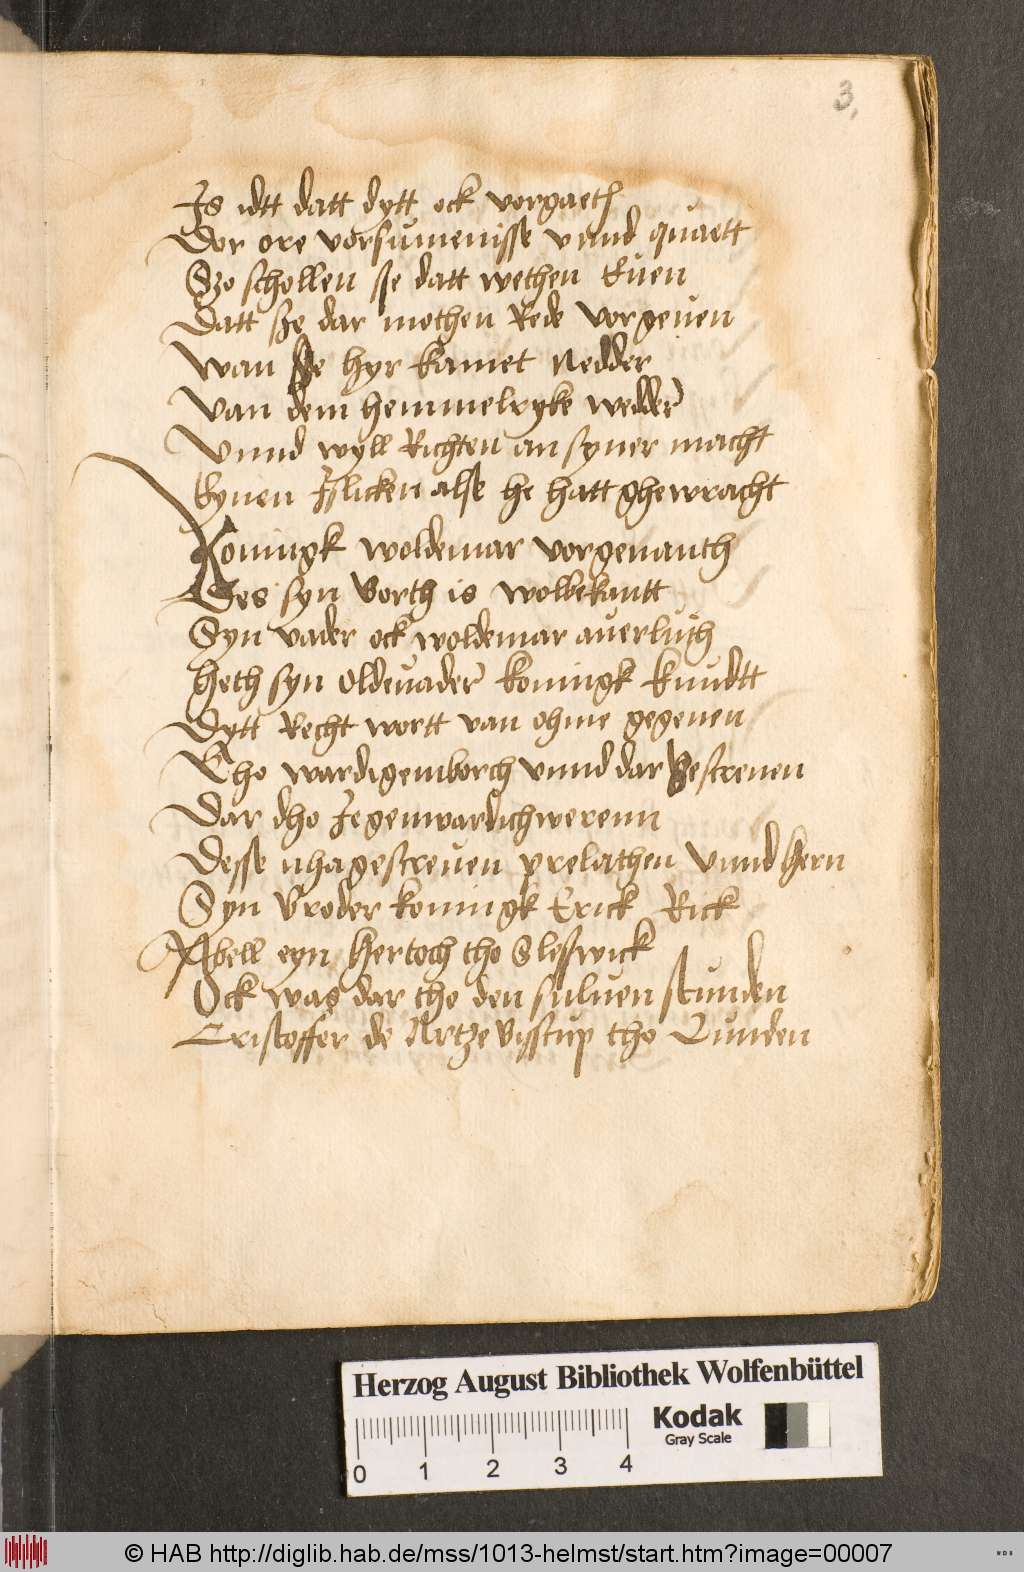 3.
Is idtt datt dytt ock vorgaeth
Dor ore vorsumenisse vnnd quaett
Szo schollen se datt wethen Euen
Datt sze dar mothen Rede vorgeuen
Wan se hyr kamet Nedder
Van dem hemmelryke wedder
Vnnd wyll Richten an syner macht
Eynen Islicken alse he hatt ghewracht
Koningk woldemar vorgenanth
Des syn Borth is wolbekantt
Syn vader ock woldemar auerluth
heth syn Oldeuader koningk knudtt
Dytt Recht wortt van ohme gegeuen
Tho wardigemborch vnnd dar Bescreuen
Dar dho Jegenwardich werenn
Desse nhagescreuen prelathen vnnd hern
Syn Broder koningk Erick Rick
Abell eyn hertoch tho Sleswick
Ock was dar tho den suluen stunden
Cristoffer de Artze Bisscup tho Lunden
Herzog August Bibliothek Wolfenbüttel
Kodak
Gray Scale
0 1 2 3 4
© HAB http://diglib.hab.de/mss/1013-helmst/start.htm?image=00007